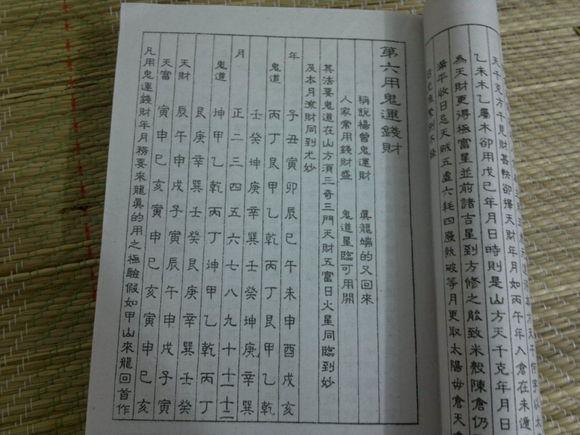 乙未木乙屬木卻用戊巳年月日時則是山方天干克年月日
為天財更得極富星並前諸吉星到方修之能致米穀陳倉仍
滿平收日忌天賊五虛六耗四廢執破等月更取太陽毋倉天
第六用鬼運錢財
稱說楊曾鬼運財　真龍端的又回來
人家常用錢財盛　鬼道星臨可用開
其法要鬼道在山方須三奇三門天財五富日火星同臨到妙
及本月激財同到尤妙
年　子丑寅卯辰巳午未申酉戌亥
鬼道　丙丁艮甲乙乾丙丁艮甲乙乾
壬癸坤庚辛巽壬癸坤庚辛巽
月　正二三四五六七八九十十一十二
鬼道　坤甲乙乾丙丁坤甲乙乾丙丁
艮庚辛巽壬癸艮庚辛巽壬癸
天財　辰午申戌子寅辰午申戌子寅
天富　寅申巳亥寅申巳亥寅申巳亥
凡用鬼運錢財年月務要來龍真的用之極驗假如甲山來龍回首作